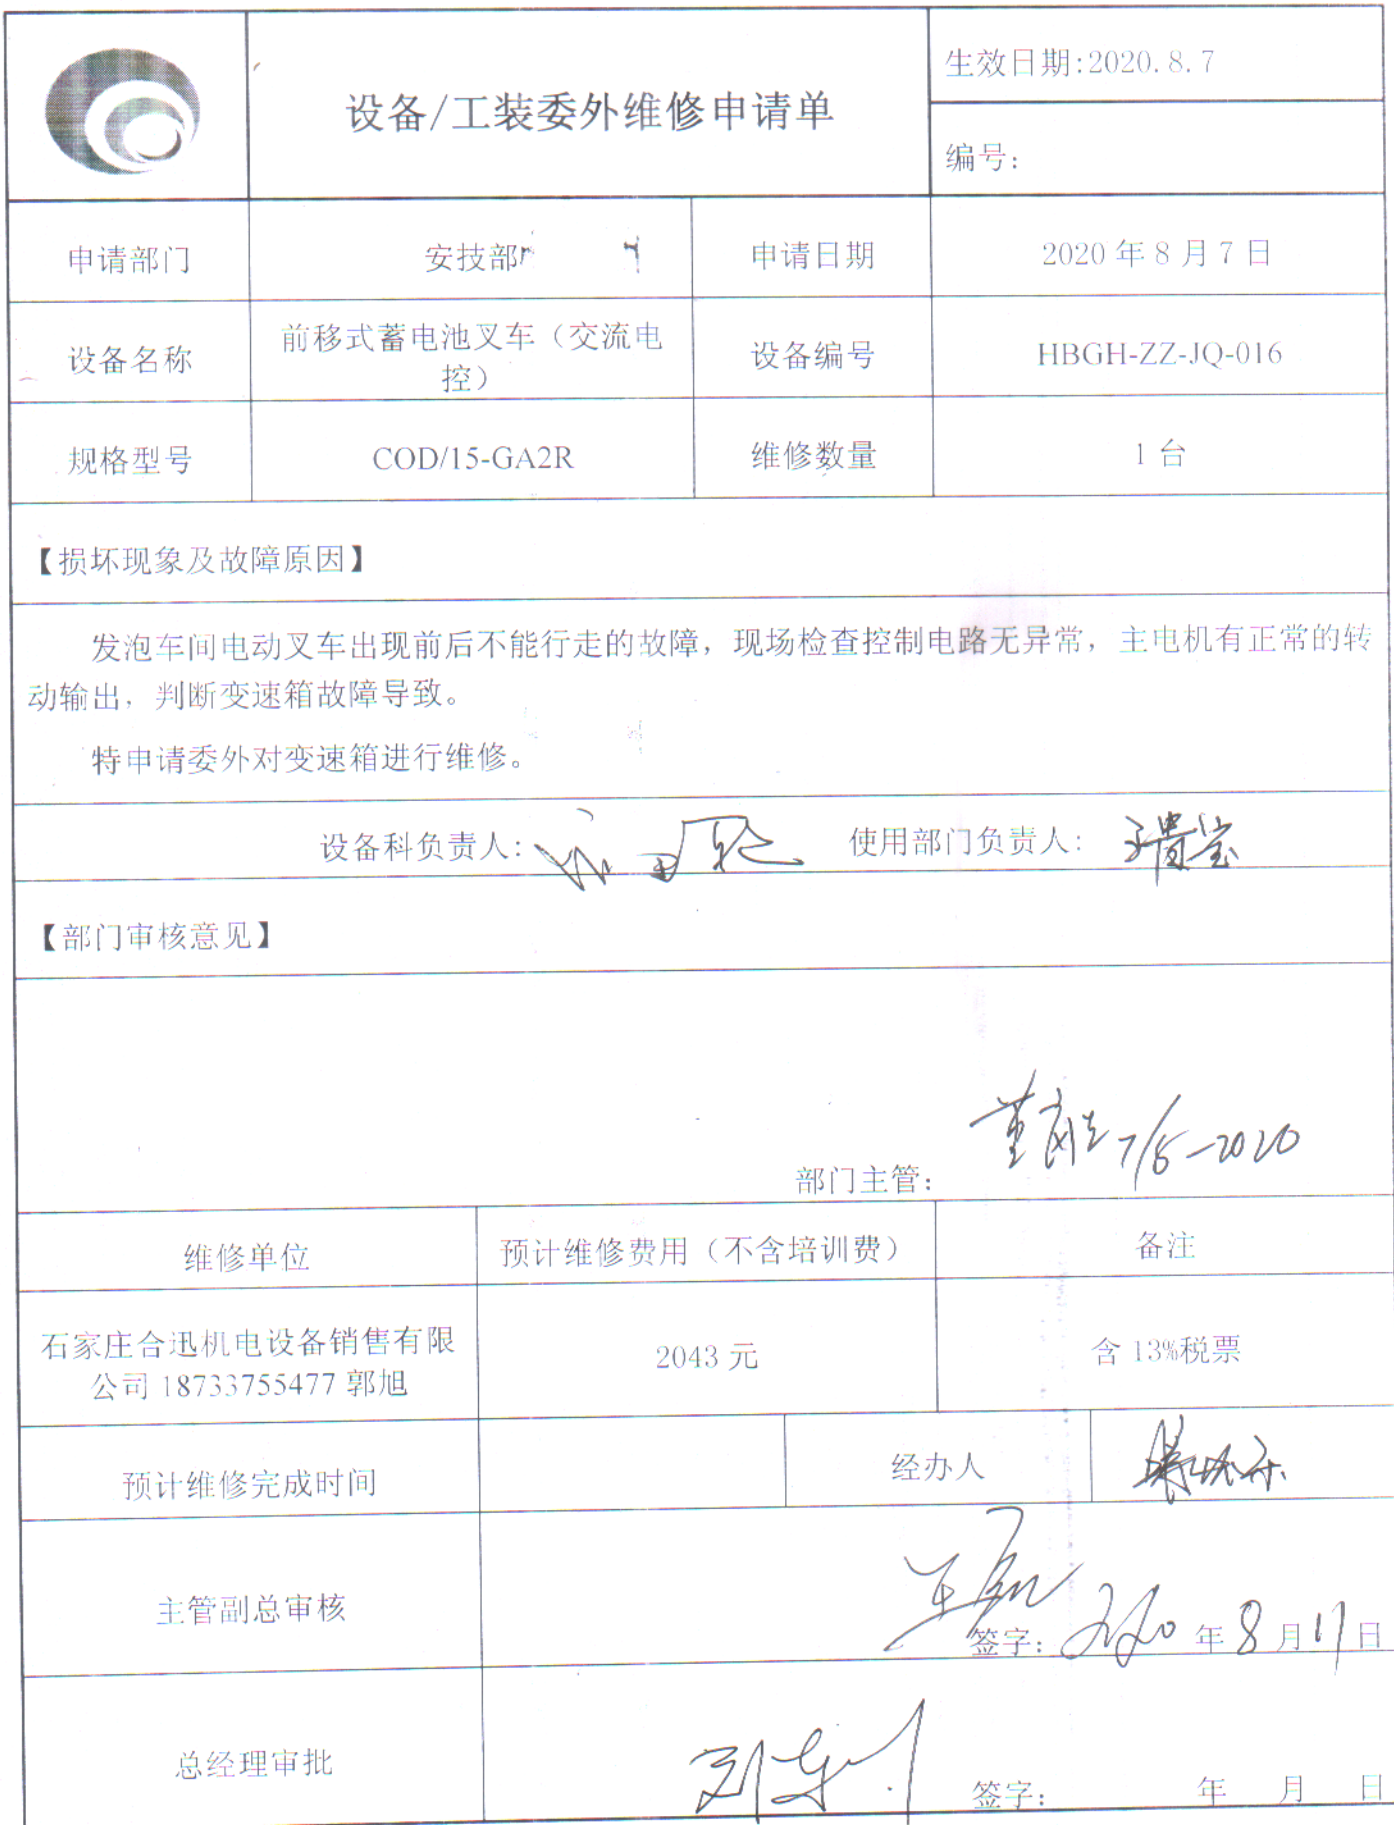 设备/工装委外维修申请单
生效日期:2020.8.7
编号:
申请部门
安技部
申请日期
2020 年 8 月 7 日
设备名称
前移式蓄电池叉车（交流电
控）
设备编号
HBGH-ZZ-JQ-016
规格型号
COD/15-GA2R
维修数量
1 台
【损坏现象及故障原因】
发泡车间电动叉车出现前后不能行走的故障，现场检查控制电路无异常，主电机有正常的转
动输出，判断变速箱故障导致。
特申请委外对变速箱进行维修。
设备科负责人:
使用部门负责人:
【部门审核意见】
部门主管:
维修单位
预计维修费用（不含培训费）
备注
石家庄合迅机电设备销售有限
公司 18733755477 郭旭
2043 元
含 13%税票
预计维修完成时间
经办人
主管副总审核
签字: 2020 年 8 月 日
总经理审批
签字: 年 月 日